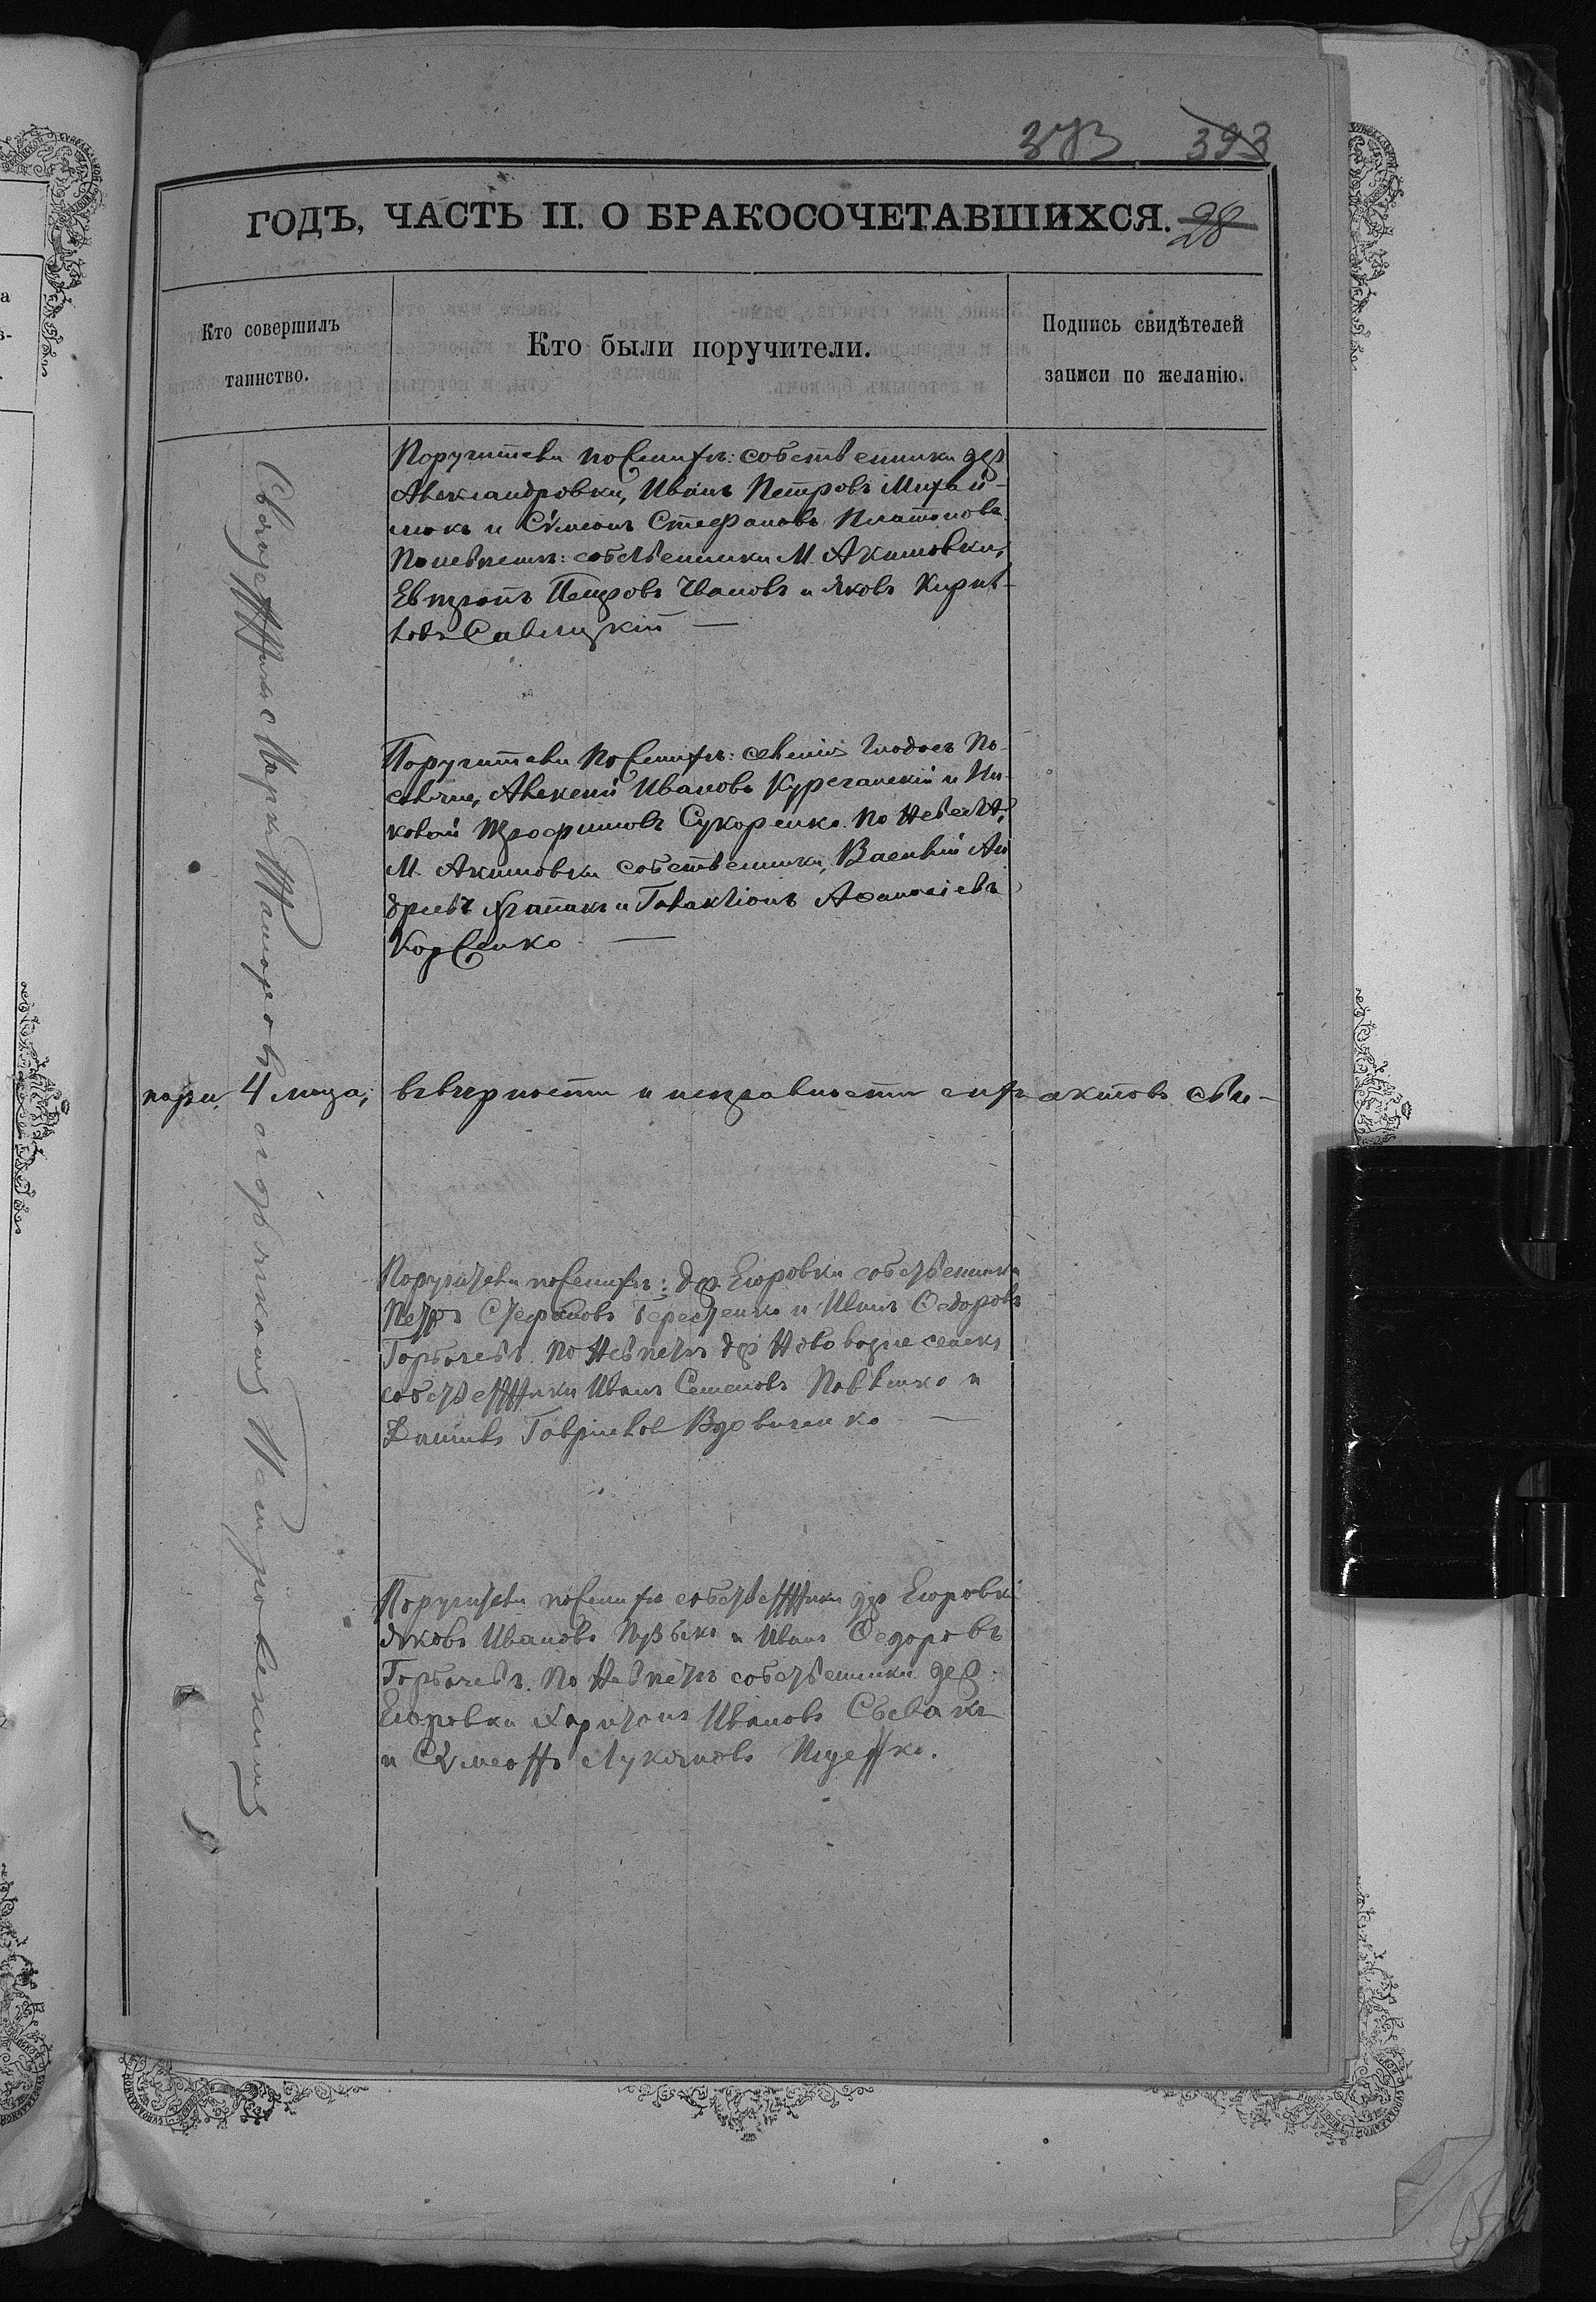 373 393
ГОДЪ, ЧАСТЬ II. О БРАКОСОЧЕТАВШИХСЯ. 28
Кто совершилъ
таинство.
Кто были поручители.
Подпись свидѣтелей
записи по желанію.
Поручители по женихѣ: собственники дер
Александровки, Иванъ Петровъ Михай-
люкъ и Сѵмеонъ Стефановъ Платоновъ.
По невѣстѣ: собственники М. Акимовки,
Петровъ Ивановъ и Яковъ Кирил-
ловъ Савицкій —
Поручители по женихѣ: селенія По-
селяне, Алексѣй Ивановъ Курганскій и Ни-
колай Трофимовъ Сукоренко. По невѣстѣ,
М. Акимовки собственники, Василій Ан
дреевъ и Галактіонъ Аѳанасіевъ
—
пары, 4 лица; въ вѣрности и исправности сихъ актовъ сви-
Поручители по женихѣ: дер. Егоровки собственники
Петръ Стефановъ и Иванъ Ѳедоровъ
Горбачевъ. По невѣстѣ дер
собственники Иванъ Семеновъ Павленко и
Гавріиловъ Вдовиченко —
Поручители по женихѣ собственники дер Егоровки
Яковъ Ивановъ и Иванъ Ѳедоровъ
Горбачевъ. По невѣстѣ собственники дер.
Егоровки Харитонъ Ивановъ
и Сѵмеонъ Лукьяновъ